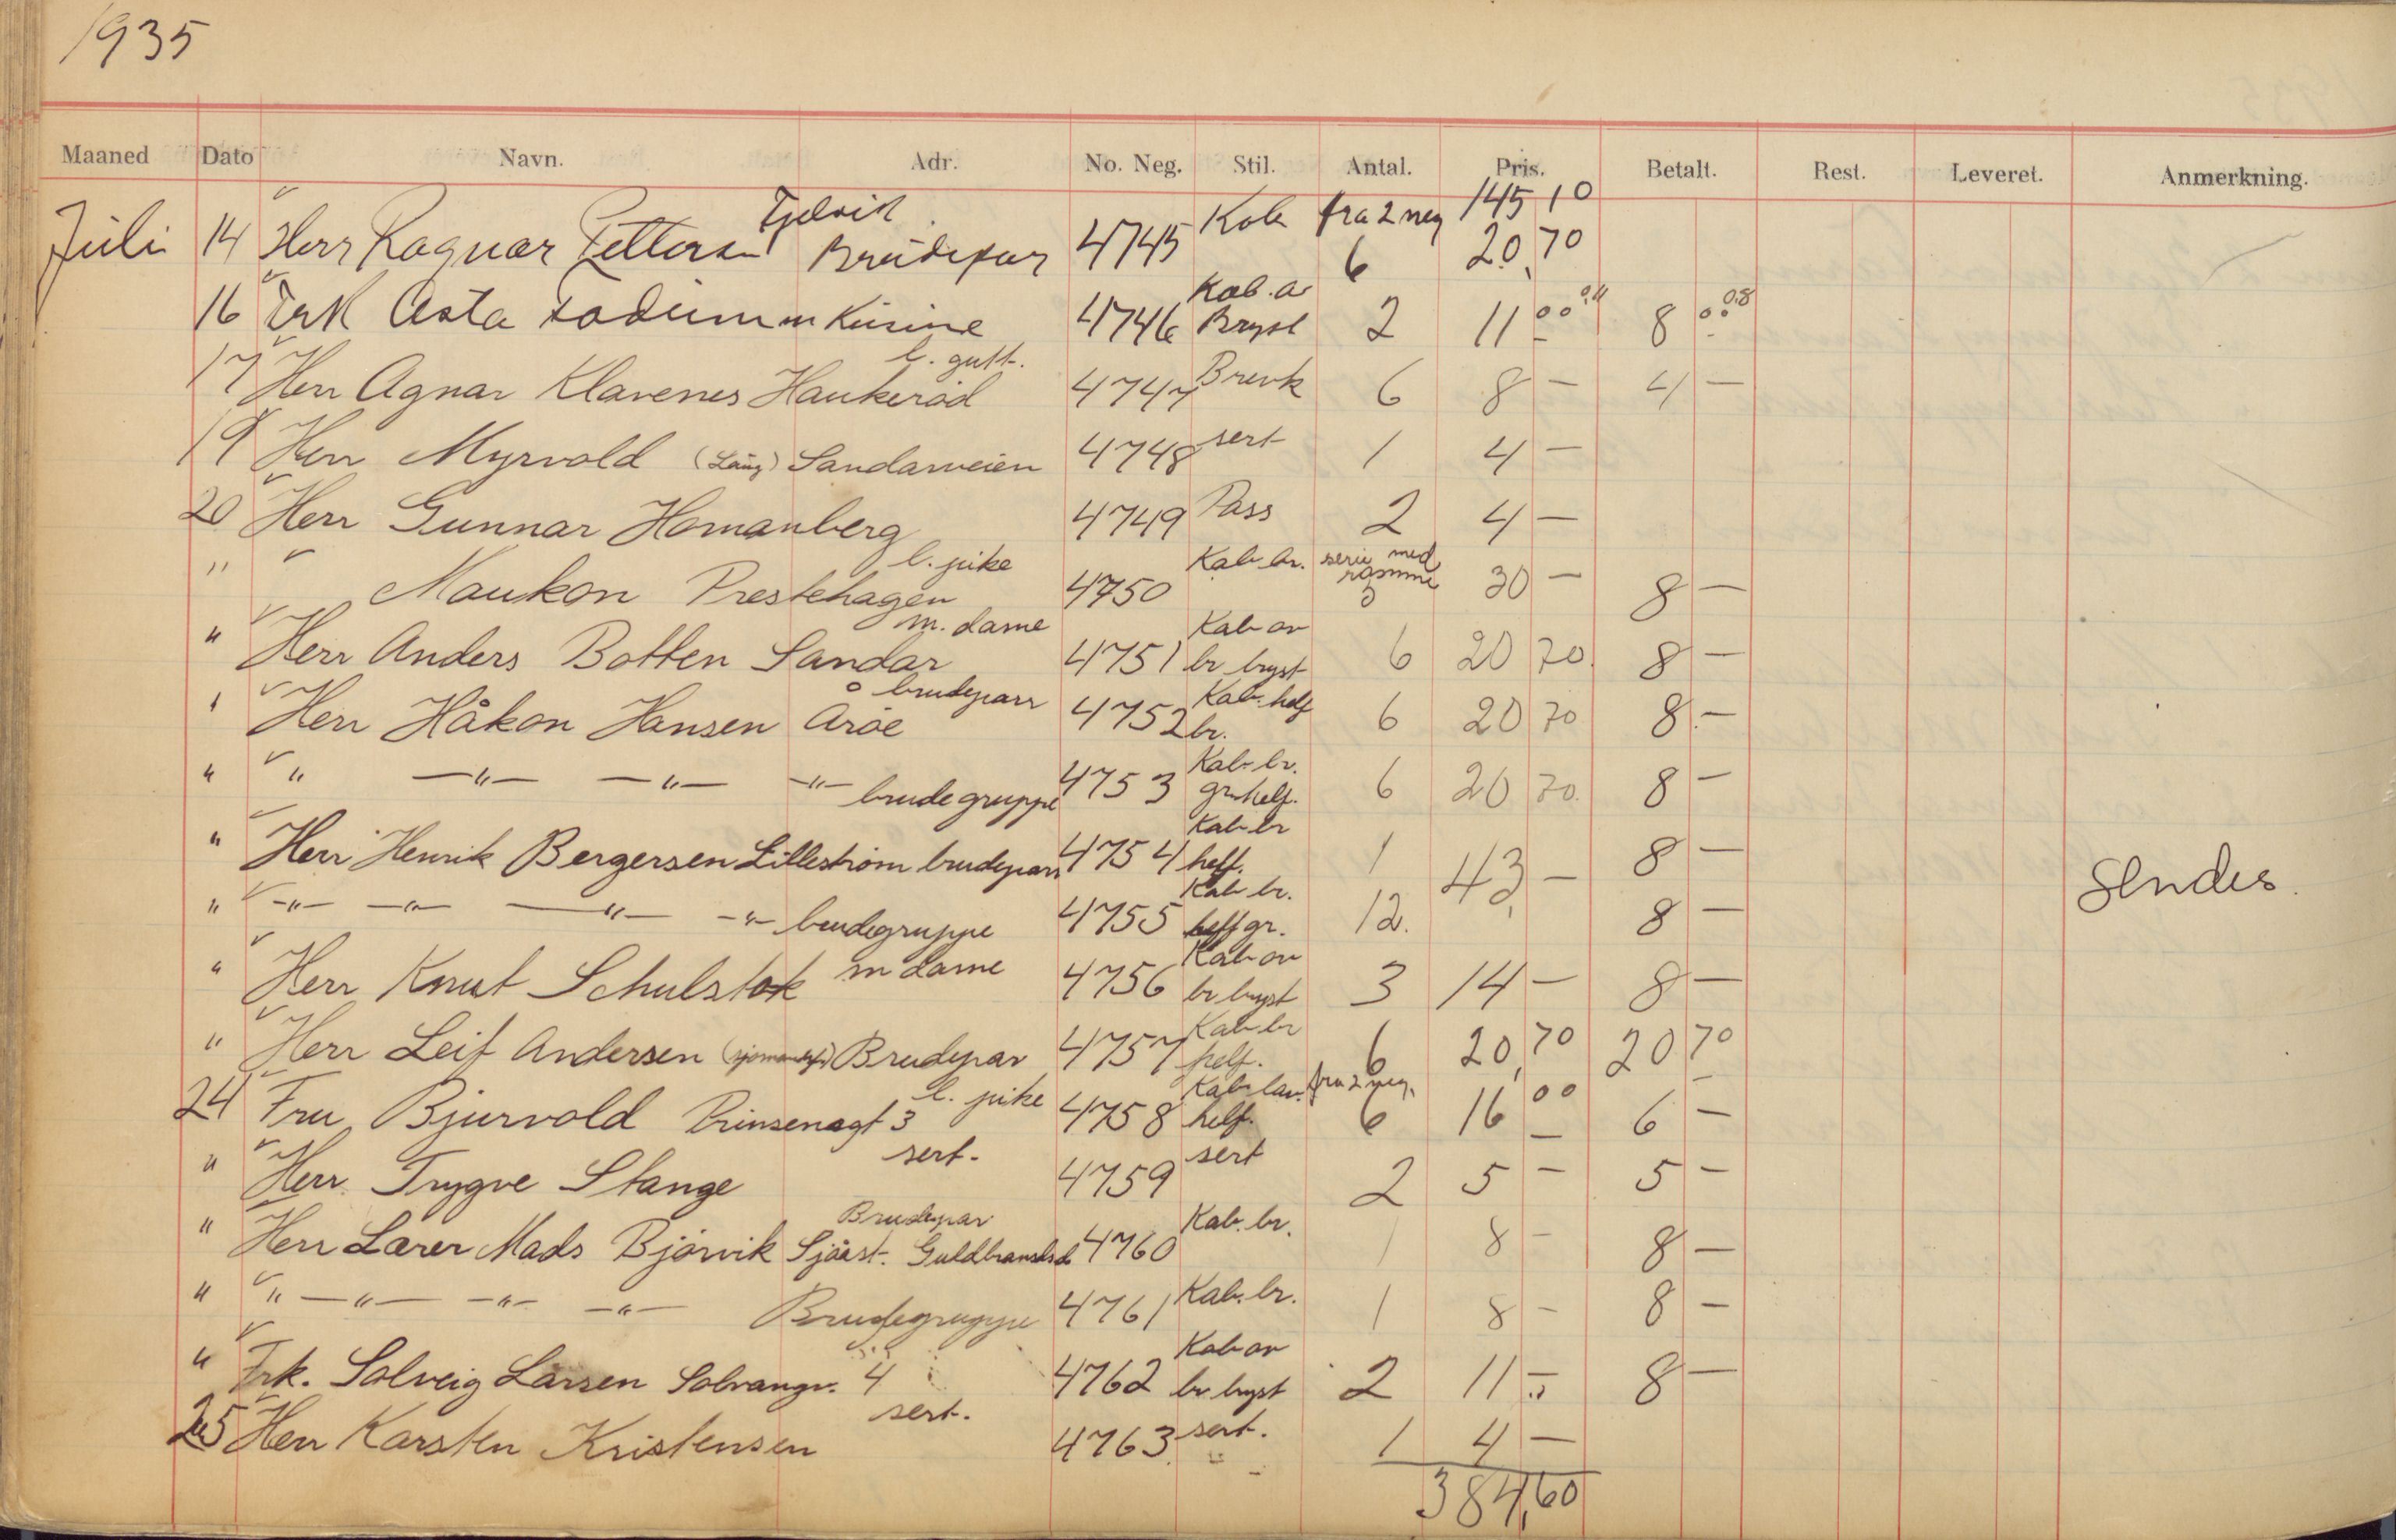 1935
Maaned Dato Navn. Adr. No. Neg. Stil. Antal. Pris. Betalt. Rest. Leveret. Anmerkning.
145 10
Juli 14 Herr Ragnar Pettersen Tjølvik Brudepar 4745 Kab fra 2 neg 6 20,70
16 Frk Asta m Kusine 4746 Kab. a Bryst 2 11 00 8 00
17 Herr Agnar Klavenes Haukerød l. gutt. 4747 Brevk 6 8 — 4 —
19 Herr Myrvold Sandarveien 4748 sert 1 4 —
20 Herr Gunnar Homanberg 4749 Pass 2 4 —
" Maukon Prestehagen l. pike 4750 Kab br. serie med ramme 3 30 — 8 —
" Herr Anders Botten Sandar m. dame 4751 Kab ov br bryst 6 20 70 8 —
" Herr Håkon Hansen Aröe brudepar 4752 Kab. helf br. 6 20 70 8 —
" " —"— —"— —"— brudegruppe 4753 Kab br. gr. helf. 6 20 70 8 —
" Herr Henrik Bergersen Lilleström brudepar 4754 Kab br helf. 1 43,— 8 — Sendes.
" —"— —"— —"— —"— brudegruppe 4755 Kab br. helf gr. 12. 8 —
" Herr Knut Schulstok m dame 4756 Kab ov br bryst 3 14 — 8 —
" Herr Leif Andersen Brudepar 4757 Kab br helf. 6 20,70 20 70
24 Fru Bjurvold Prinsensgt 3 l. pike 4758 Kab lav. helf. fra 2 neg. 6 16 00 6 —
" Herr Trygve Stange sert. 4759 sert 2 5 — 5 —
" Herr Lærer Mads Bjørvik Brudepar 4760 Kab. br. 1 8 — 8 —
" " —"— —"— —"— Brudegruppe 4761 Kab. br. 1 8 — 8 —
" Frk. Solveig Larsen Solvangv. 4 4762 Kab ov br bryst 2 11 — 8 —
25 Herr Karsten Kristensen sert. 4763 sert. 1 4 —
384,60